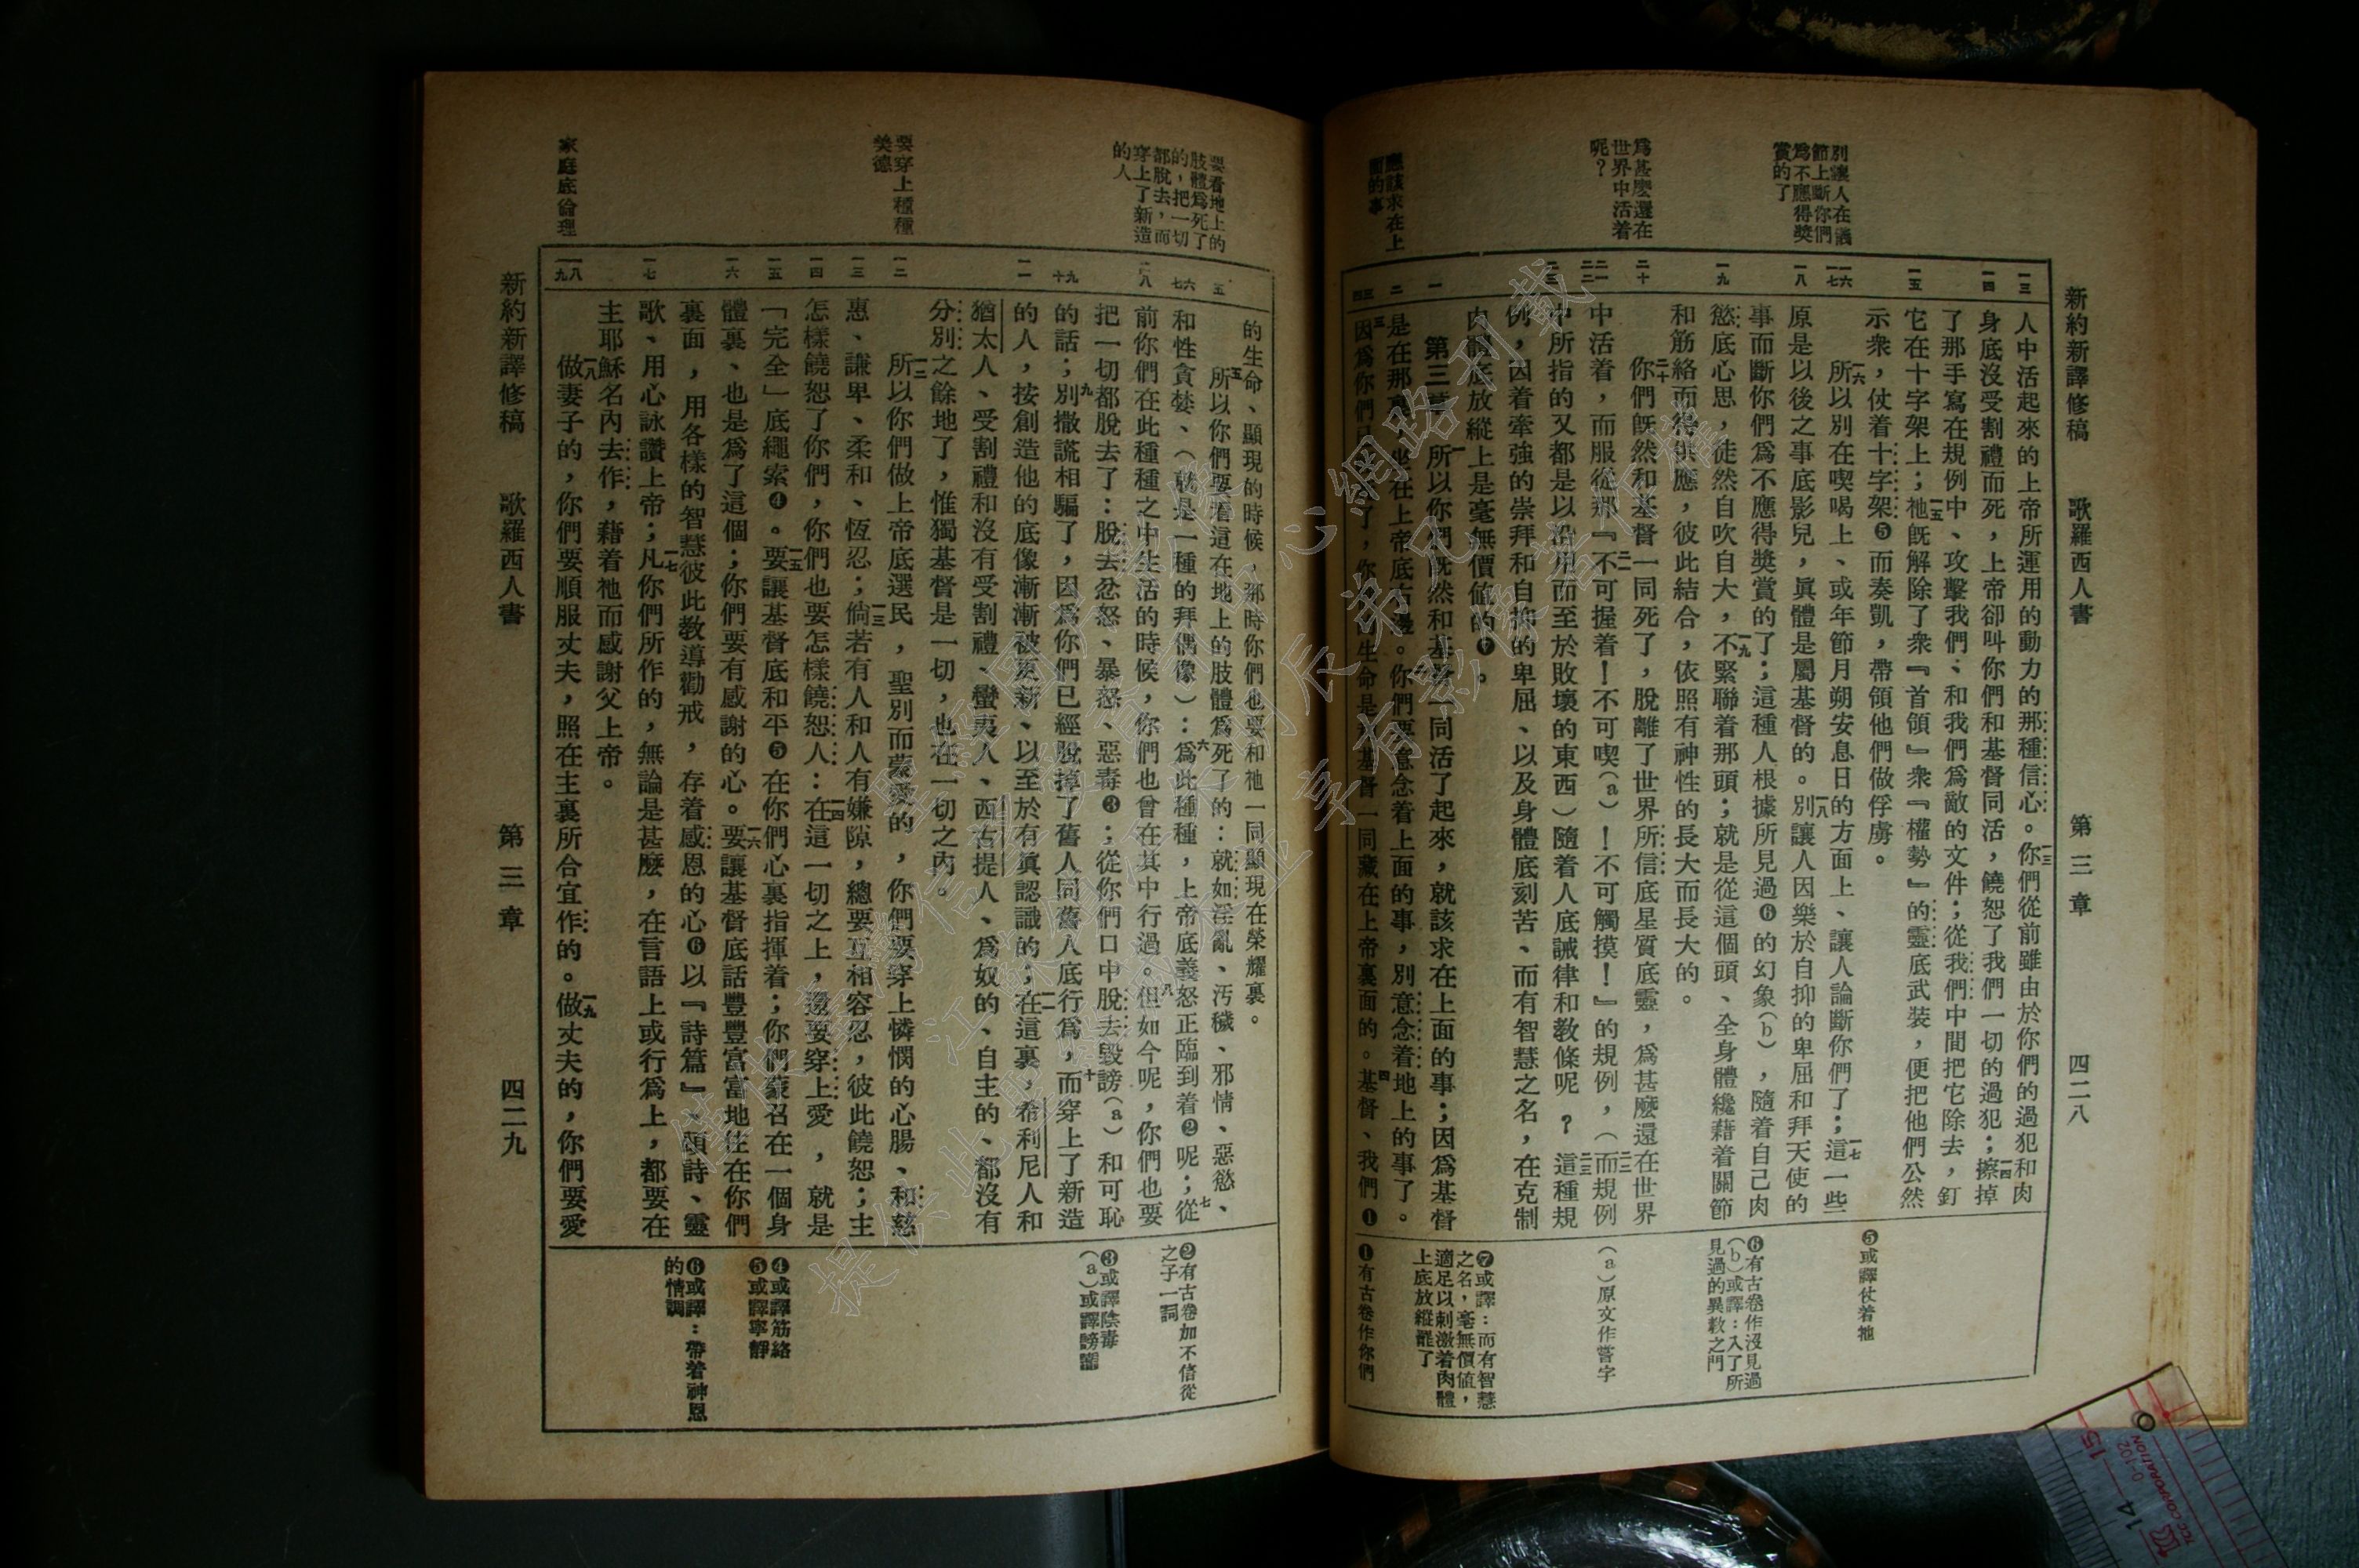 新約新譯修稿　歌羅西人書　第三章　四二八
別讓人在議
節上斷你們
爲不應得獎
賞的了
爲甚麼還在
世界中活着
呢？
應該求在上
面的事
一三
一四
一五
一六
一七
一八
一九
二十
二一
二二
二三
一
二
三
四
人中活起來的上帝所運用的動力的那種信心。一三你們從前雖由於你們的過犯和肉
身底沒受割禮而死，上帝卻叫你們和基督同活，饒恕了我們一切的過犯；一四擦掉
了那手寫在規例中、攻擊我們、和我們爲敵的文件；從我們中間把它除去，釘
它在十字架上；一五祂既解除了衆『首領』衆『權勢』的靈底武裝，便把他們公然
示衆，仗着十字架❺而奏凱，帶領他們做俘虜。
一六所以別在喫喝上、或年節月朔安息日的方面上、讓人論斷你們了；一七這一些
原是以後之事底影兒，眞體是屬基督的。一八別讓人因樂於自抑的卑屈和拜天使的
事而斷你們爲不應得獎賞的了；這種人根據所見過❻的幻象（b），隨着自己肉
慾底心思，徒然自吹自大，一九不緊聯着那頭；就是從這個頭、全身體纔藉着關節
和筋絡而得供應，彼此結合，依照有神性的長大而長大的。
二十你們既然和基督一同死了，脫離了世界所信底星質底靈，爲甚麼還在世界
中活着，而服從那二一『不可握着！不可喫（a）！不可觸摸！』的規例，二二（而規例
中所指的又都是以沿用而至於敗壞的東西）隨着人底誡律和教條呢？二三這種規
例，因着牽強的崇拜和自抑的卑屈、以及身體底刻苦、而有智慧之名，在克制
肉體底放縱上是毫無價值的❼。
第三章　一所以你們既然和基督一同活了起來，就該求在上面的事；因爲基督
是在那裏、坐在上帝底右邊。二你們要意念着上面的事，別意念着地上的事了。
三因爲你們已死了，你們的生命是和基督一同藏在上帝裏面的。四基督、我們❶
❺或譯仗着祂
❻有古卷作沒見過
（b）或譯：入了所
見過的異教之門
（a）原文作嘗字
❼或譯：而有智慧
之名，毫無價値，
適足以刺激着肉體
上底放縱罷了
❶有古卷作你們
要看地上的
肢體爲死了
的，把一切
都脫去，而
穿上了新造
的人
要穿上種種
美德
家庭底倫理
五
六
七
八
九
十
一一
一二
一三
一四
一五
一六
一七
一八
一九
的生命、顯現的時候，那時你們也要和祂一同顯現在榮耀裏。
五所以你們要看這在地上的肢體爲死了的：就如淫亂、汚穢、邪情、惡慾、
和性貪婪、（就是一種的拜偶像）：六爲此種種，上帝底義怒正臨到着❷呢；七從
前你們在此種種之中生活的時候，你們也曾在其中行過。八但如今呢，你們也要
把一切都脫去了：脫去忿怒、暴怒、惡毒❸；從你們口中脫去毀謗（a）和可恥
的話；九別撒謊相騙了，因爲你們已經脫掉了舊人同舊人底行爲，十而穿上了新造
的人，按創造他的底像漸漸被更新、以至於有眞認識的；一一在這裏，希利尼人和
猶太人、受割禮和沒有受割禮、蠻夷人、西古提人、爲奴的、自主的、都沒有
分別之餘地了，惟獨基督是一切，也在一切之內。
一二所以你們做上帝底選民，聖別而蒙愛的，你們要穿上憐憫的心腸、和慈
惠、謙卑、柔和、恆忍；一三倘若有人和人有嫌隙，總要互相容忍，彼此饒恕；主
怎樣饒恕了你們，你們也要怎樣饒恕人：一四在這一切之上，還要穿上愛，就是
「完全」底繩索❹。一五要讓基督底和平❺在你們心裏指揮着；你們蒙召在一個身
體裏、也是爲了這個；你們要有感謝的心。一六要讓基督底話豐豐富富地住在你們
裏面，用各樣的智慧彼此教導勸戒，存着感恩的心❻以『詩篇』、頌詩、靈
歌、用心詠讚上帝；一七凡你們所作的，無論是甚麼，在言語上或行爲上，都要在
主耶穌名內去作，藉着祂而感謝父上帝。
一八做妻子的，你們要順服丈夫，照在主裏所合宜作的。一九做丈夫的，你們要愛
❷有古卷加不信從
之子一詞
❸或譯陰毒
（a）或譯謗讟
❹或譯筋絡
❺或譯寧靜
❻或譯：帶着神恩
的情調
新約新譯修稿　歌羅西人書　第三章　四二九
15
14
TCC CORPORATION